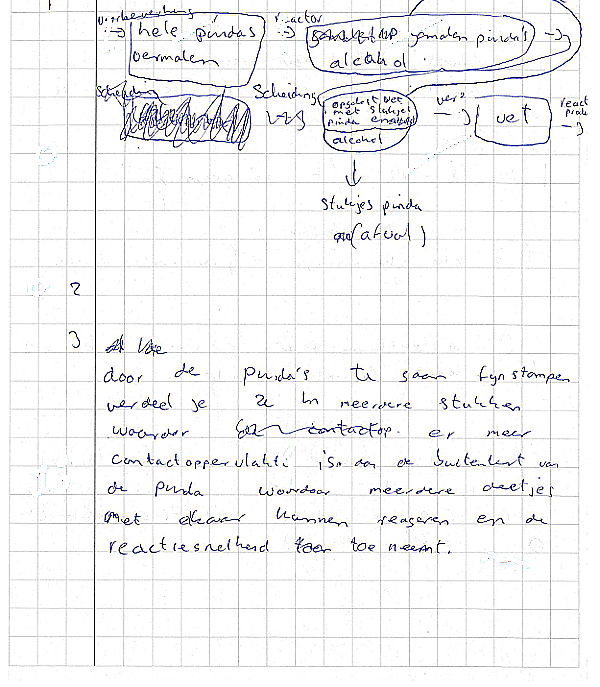 voorbewerking
hele pinda's
vermalen
reactor
gemalen pinda's
alcohol.
Scheiding
Scheiding
opgelost vet
met stukjes
pinda
alcohol
vet
stukjes pinda
(afval)
2
3
door de pinda's te gaan fijnstampen
verdeel je ze in meerdere stukken
waardoor er meer
contactoppervlakte is aan de buitenkant van
de pinda waardoor meerdere deeltjes
met elkaar kunnen reageren en de
reactiesnelheid toe neemt.